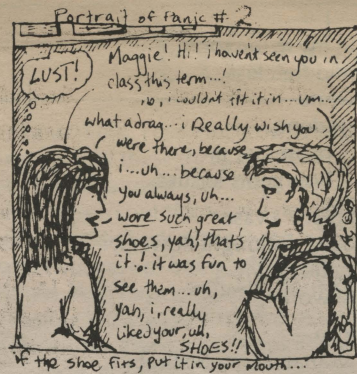 Portrait of Panic # 2
LUST!
Maggie! Hi! i haven't seen you in
class this term...!
no, i couldn't fit it in...um...
what a drag... i Really wish you
were there, because
i...uh... because
you always, uh...
wore such great
shoes, yah, that's
it! it was fun to
see them... uh,
yah, i, really
liked your, uh,
SHOES!!
if the shoe fits, put it in your mouth...